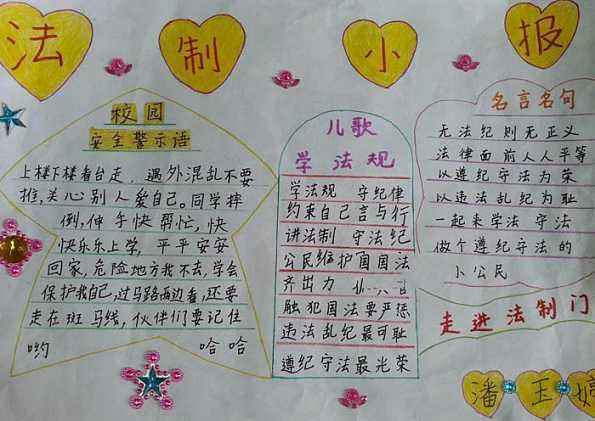 法制小报
校园
安全警示语
上楼下楼看台走，遇外混乱不要
推，关心别人爱自己。同学摔
倒，伸手快帮忙，快
快乐乐上学，平平安安
回家，危险地方我不去，学会
保护我自己，过马路两边看，还要
走在斑马线，伙伴们要记住
哟 哈哈
儿歌
学法规
学法规 守纪律
约束自己言与行
讲法制 守法纪
公民维护国法
齐出力
触犯国法要严惩
违法乱纪最可耻
遵纪守法最光荣
名言名句
无法纪则无正义
法律面前人人平等
以遵纪守法为荣
以违法乱纪为耻
一起来学法 守法
做个遵纪守法的
小公民
走进法制门
潘玉婷